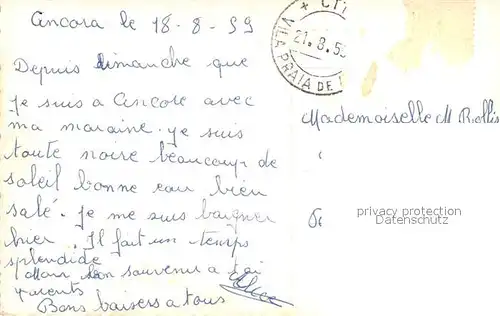 Ancora le 18-8-59
Depuis dimanche que
je suis a Ancore avec
ma maraine. je suis
toute noire beaucoup de
soleil bonne eau bien
salé. Je me suis baigner
hier. Il fait un temps
splendide
bon souvenir a toi
parents
Bons baisers a tous
21.8.59
VILA PRAIA DE
Mademoiselle M
privacy protection
Datenschutz